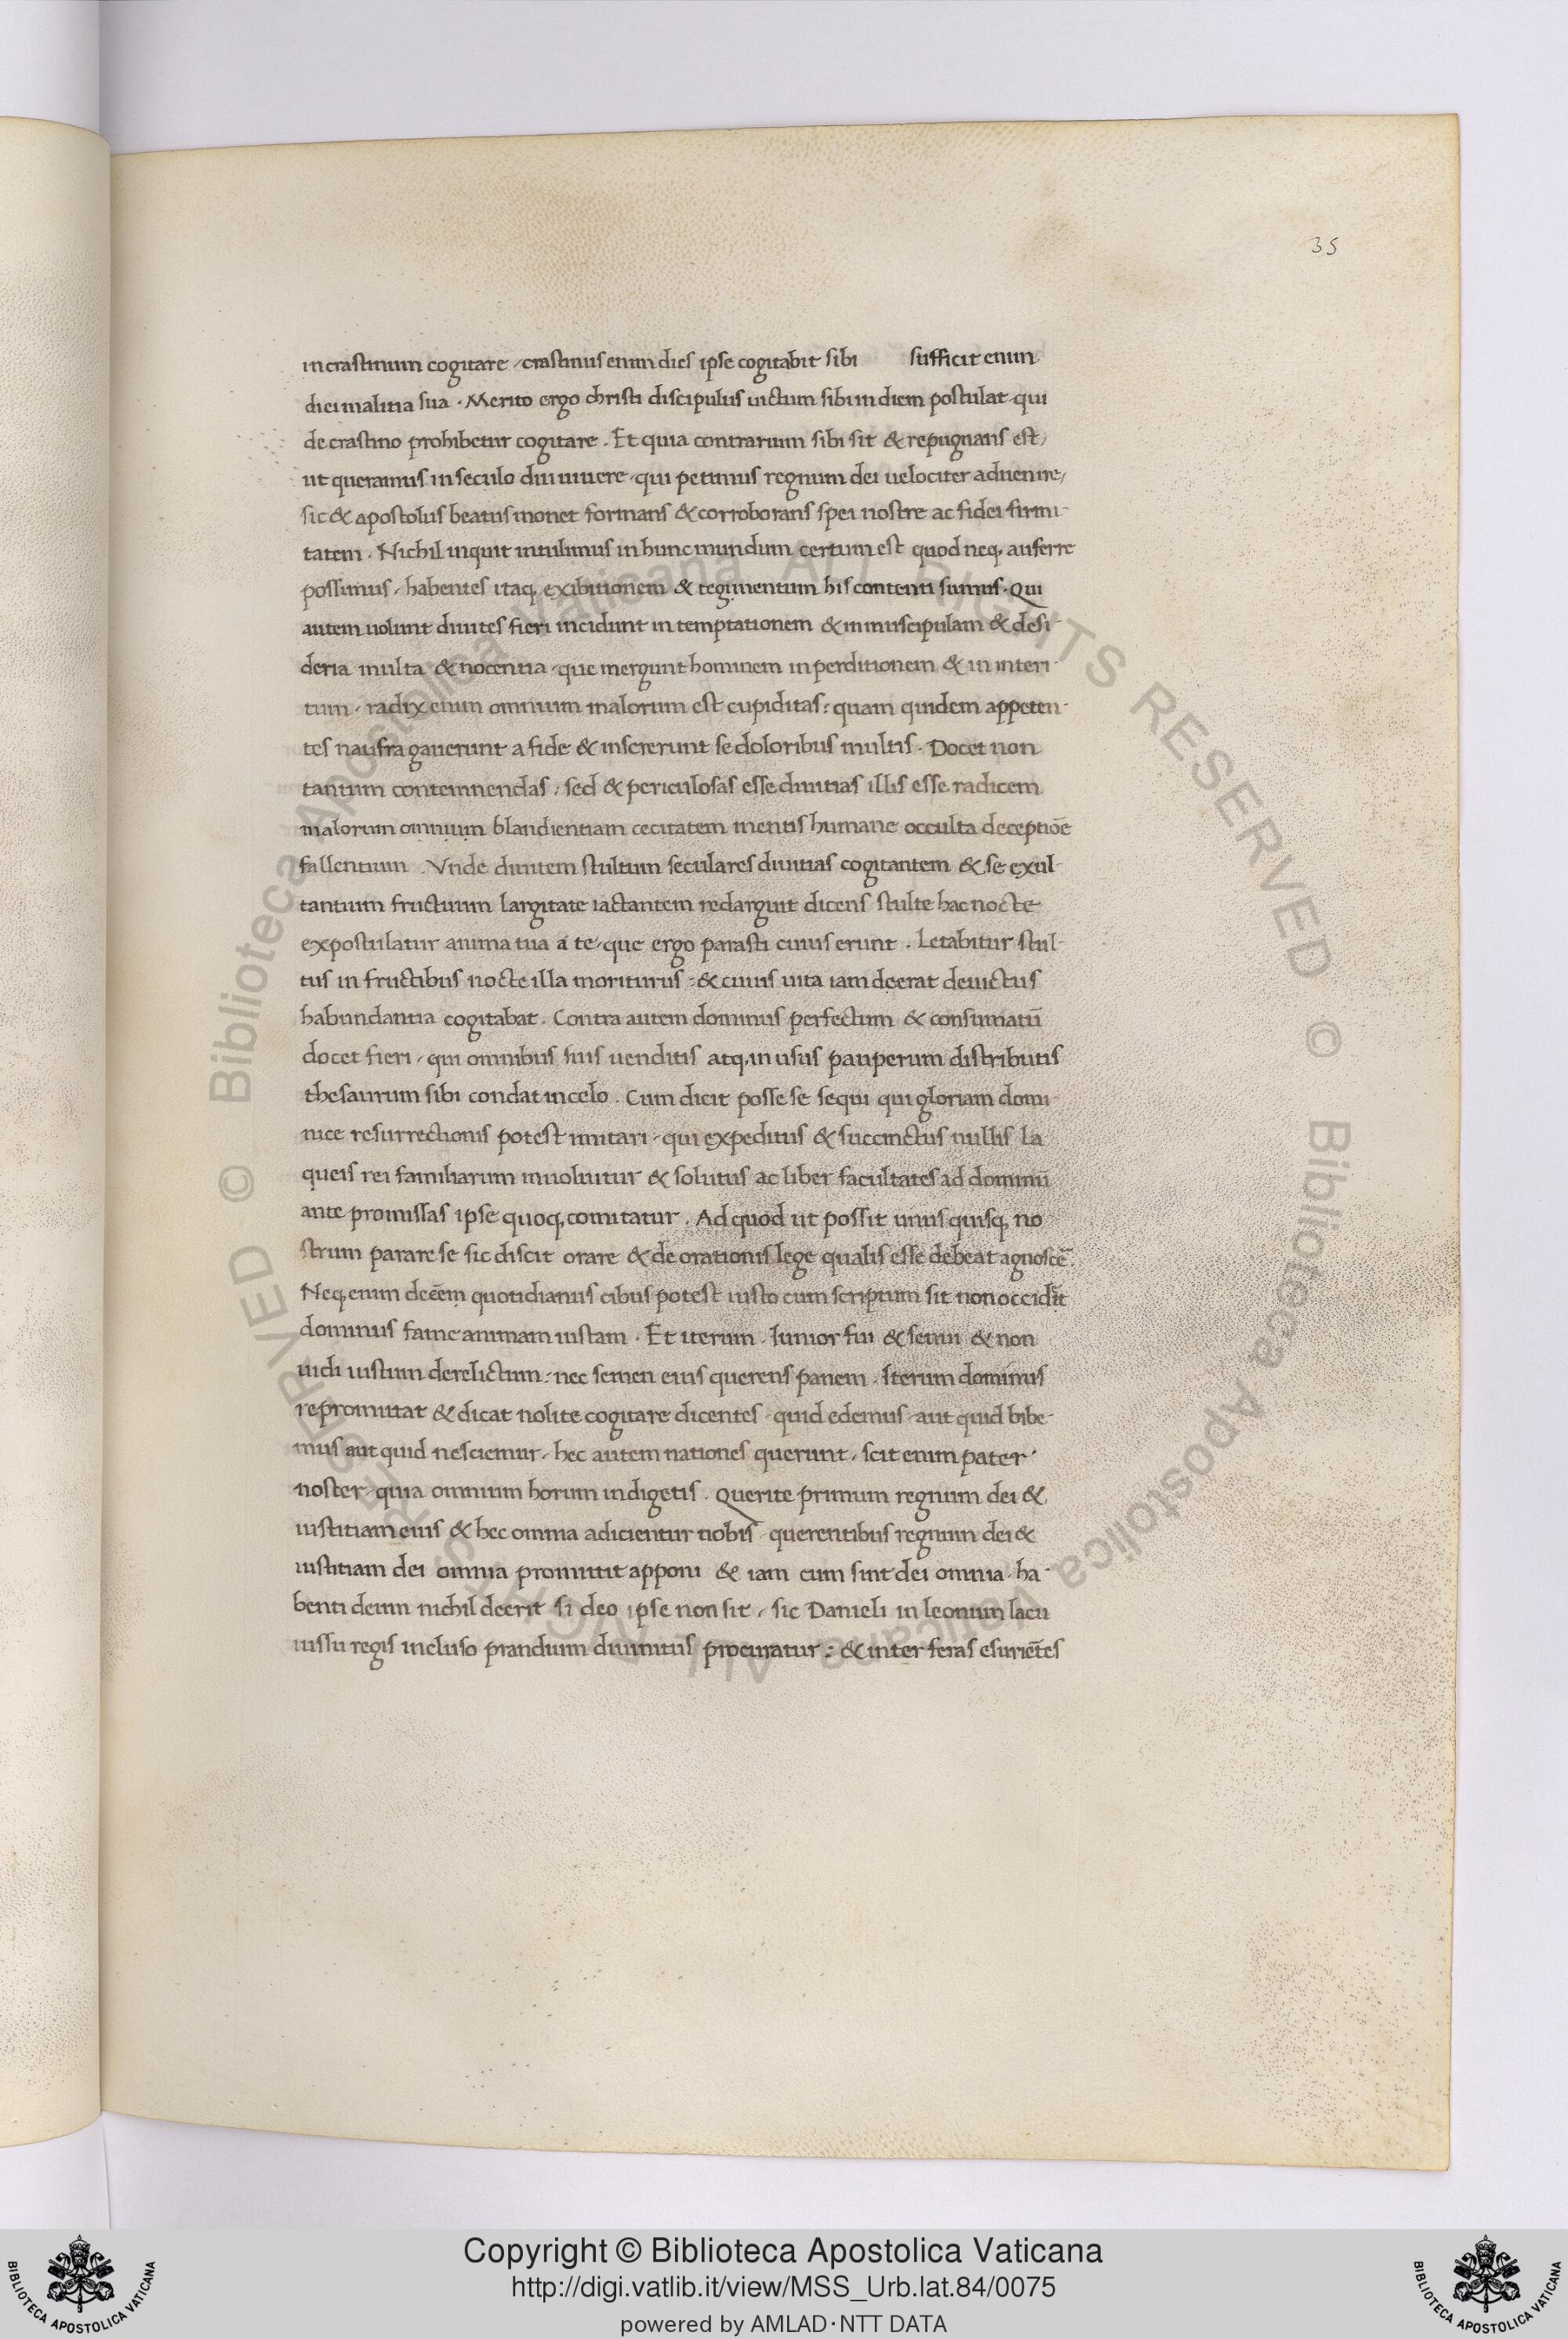 35
in crastinum cogitare, crastinus enim dies ipse cogitabit sibi sufficit enim
diei malitia sua. Merito ergo christi discipulus uictum sibi in diem postulat qui
de crastino prohibetur cogitare. Et quia contrarium sibi sit & repugnans est,
ut queramus in seculo diu uiuere, qui petimus regnum dei uelociter aduenire,
sic & apostolus beatus monet formans & corroborans spei nostre ac fidei firmi-
tatem. Nichil inquit intulimus in hunc mundum certum est quod neq, auferre
possimus, habentes itaq, exibitionem & tegimentum his contenti sumus. Qui
autem uolunt diuites fieri incidunt in temptationem & in muscipulam & desi-
deria multa & nocentia, que mergunt hominem in perditionem & in interi-
tum, radix enim omnium malorum est cupiditas: quam quidem appeten-
tes naufragauerunt a fide & inseruerunt se doloribus multis. Docet non
tantum contemnendas, sed & periculosas esse diuitias illis esse radicem
malorum omnium blandientiam cecitatem mentis humane occulta deceptiõe
fallentium. Vnde diuitem stultum seculares diuitias cogitantem & se exul-
tantium fructuum largitate iactantem redarguit dicens stulte hac nocte
expostulatur anima tua a te, que ergo parasti cuius erunt. Letabitur stul-
tus in fructibus nocte illa moriturus: & cuius uita iam deerat deuictus
habundantia cogitabat. Contra autem dominus perfectum & consumatũ
docet fieri, qui omnibus suis uenditis atq, in usus pauperum distributis
thesaurum sibi condat in celo. Cum dicit posse se sequi qui gloriam domi-
nice resurrectionis potest imitari, qui expeditus & succinctus nullis la
queis rei familiarum inuoluitur & solutus ac liber facultates ad dominũ
ante promissas ipse quoq, comitatur. Ad quod ut possit unus quisq, no
strum parare se sic discit orare & de orationis lege qualis esse debeat agnoscẽ.
Neq, enim deẽem quotidianus cibus potest iusto cum scriptum sit non occidit
dominus fame animam iustam. Et iterum. Iunior fui & senui & non
uidi iustum derelictum, nec semen eius querens panem. Iterum dominus
repromittat & dicat nolite cogitare dicentes, quid edemus, aut quid bibe-
mus aut quid nesciemur, hec autem nationes querunt, scit enim pater
noster, quia omnium horum indigetis. Querite primum regnum dei &
iustitiam eius & hec omnia adicientur uobis, querentibus regnum dei &
iustitiam dei omnia promittit apponi & iam cum sint dei omnia, ha-
benti deum nichil deerit si deo ipse non sit, sic Danieli in leonum lacu
iussu regis incluso prandium diuinitus procuratur: & inter feras esuriẽtes
© Biblioteca Apostolica Vaticana ALL RIGHTS RESERVED
© Biblioteca Apostolica Vaticana ALL RIGHTS RESERVED
Copyright © Biblioteca Apostolica Vaticana
http://digi.vatlib.it/view/MSS_Urb.lat.84/0075
powered by AMLAD·NTT DATA
BIBLIOTECA APOSTOLICA VATICANA
BIBLIOTECA APOSTOLICA VATICANA